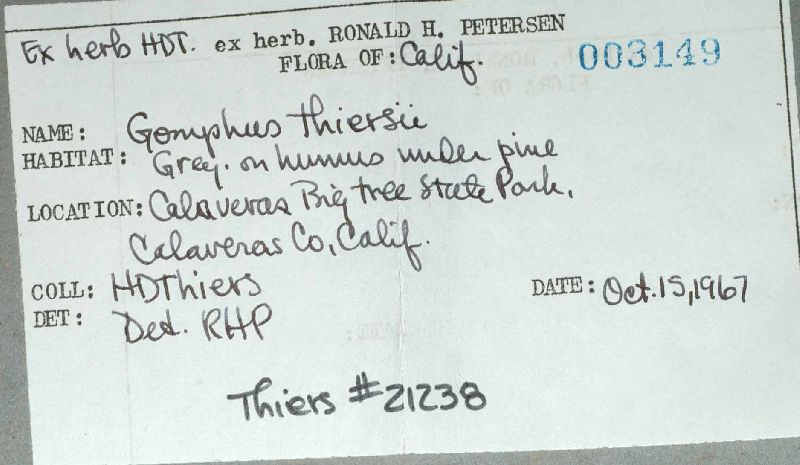 Ex herb HDT. ex herb. RONALD H. PETERSEN
FLORA OF: Calif. 003149
NAME: Gomphus thiersii
HABITAT: Greg. on humus under pine
LOCATION: Calaveras Big tree State Park,
Calaveras Co, Calif.
COLL: HDThiers DATE: Oct. 15, 1967
DET: Det. RHP
Thiers #21238